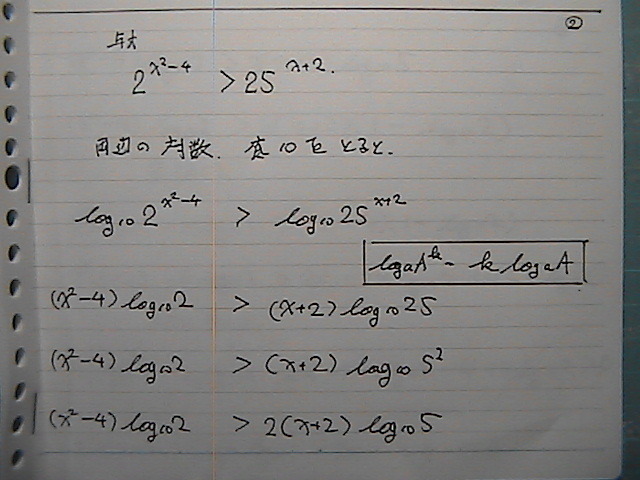 ②
与式
2^{x²-4} > 25^{x+2}.
両辺の対数. 底10をとると.
log₁₀2^{x²-4} > log₁₀25^{x+2}
logₐA^k = k logₐA
(x²-4) log₁₀2 > (x+2) log₁₀25
(x²-4) log₁₀2 > (x+2) log₁₀5²
(x²-4) log₁₀2 > 2(x+2) log₁₀5